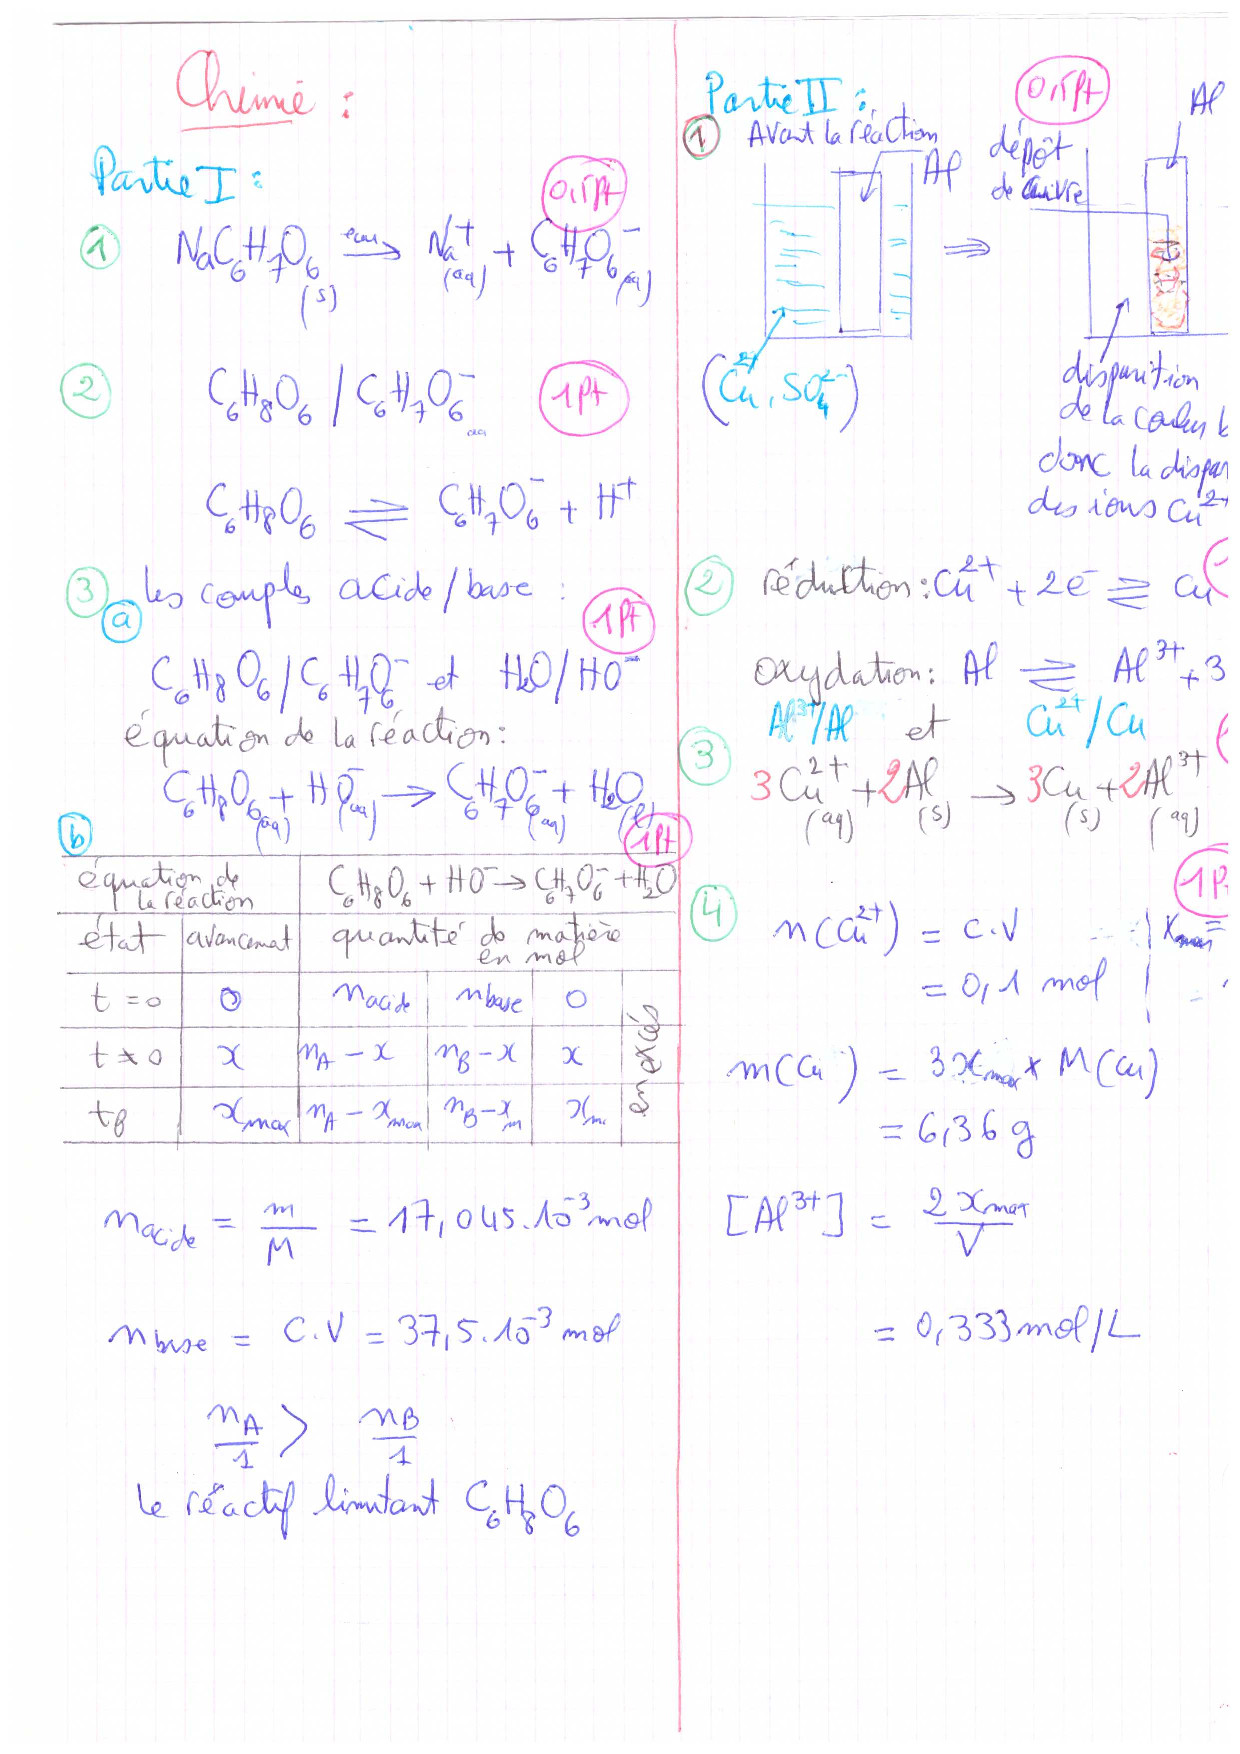 Chimie :
Partie I :
0,5pt
1 NaC6H7O6(s) eau→ Na+(aq) + C6H7O6-(aq)
2 C6H8O6 / C6H7O6- aq
1pt
C6H8O6 ⇌ C6H7O6- + H+
3 les couples acide/base :
a
1pt
C6H8O6 / C6H7O6- et H2O/HO-
équation de la réaction :
C6H8O6(aq) + HO-(aq) → C6H7O6-(aq) + H2O(l)
b
1pt
équation de la réaction C6H8O6 + HO- → C6H7O6- + H2O
état avancemat quantité de matière en mol
t = 0 0 nacide nbase 0
t ≠ 0 x nA - x nB - x x
tf xmax nA - xmax nB - xm xm
en excés
nacide = m/M = 17,045.10-3 mol
nbase = C.V = 37,5.10-3 mol
nA/1 > nB/1
le réactif limitant C6H8O6
Partie II :
0,5pt
1 Avant la réaction
Al
dépôt
de cuivre
Al
⇒
(Cu2+, SO42-)
disparition
de la couleur b
donc la dispar
des ions Cu2+
2 réduction : Cu2+ + 2e- ⇌ Cu
oxydation : Al ⇌ Al3+ + 3
Al3+/Al et Cu2+/Cu
3 3Cu2+(aq) + 2Al(s) → 3Cu(s) + 2Al3+(aq)
1p
4 n(Cu2+) = C.V xmax =
= 0,1 mol =
m(Cu) = 3xmax × M(Cu)
= 6,36 g
[Al3+] = 2xmax/V
= 0,333 mol/L